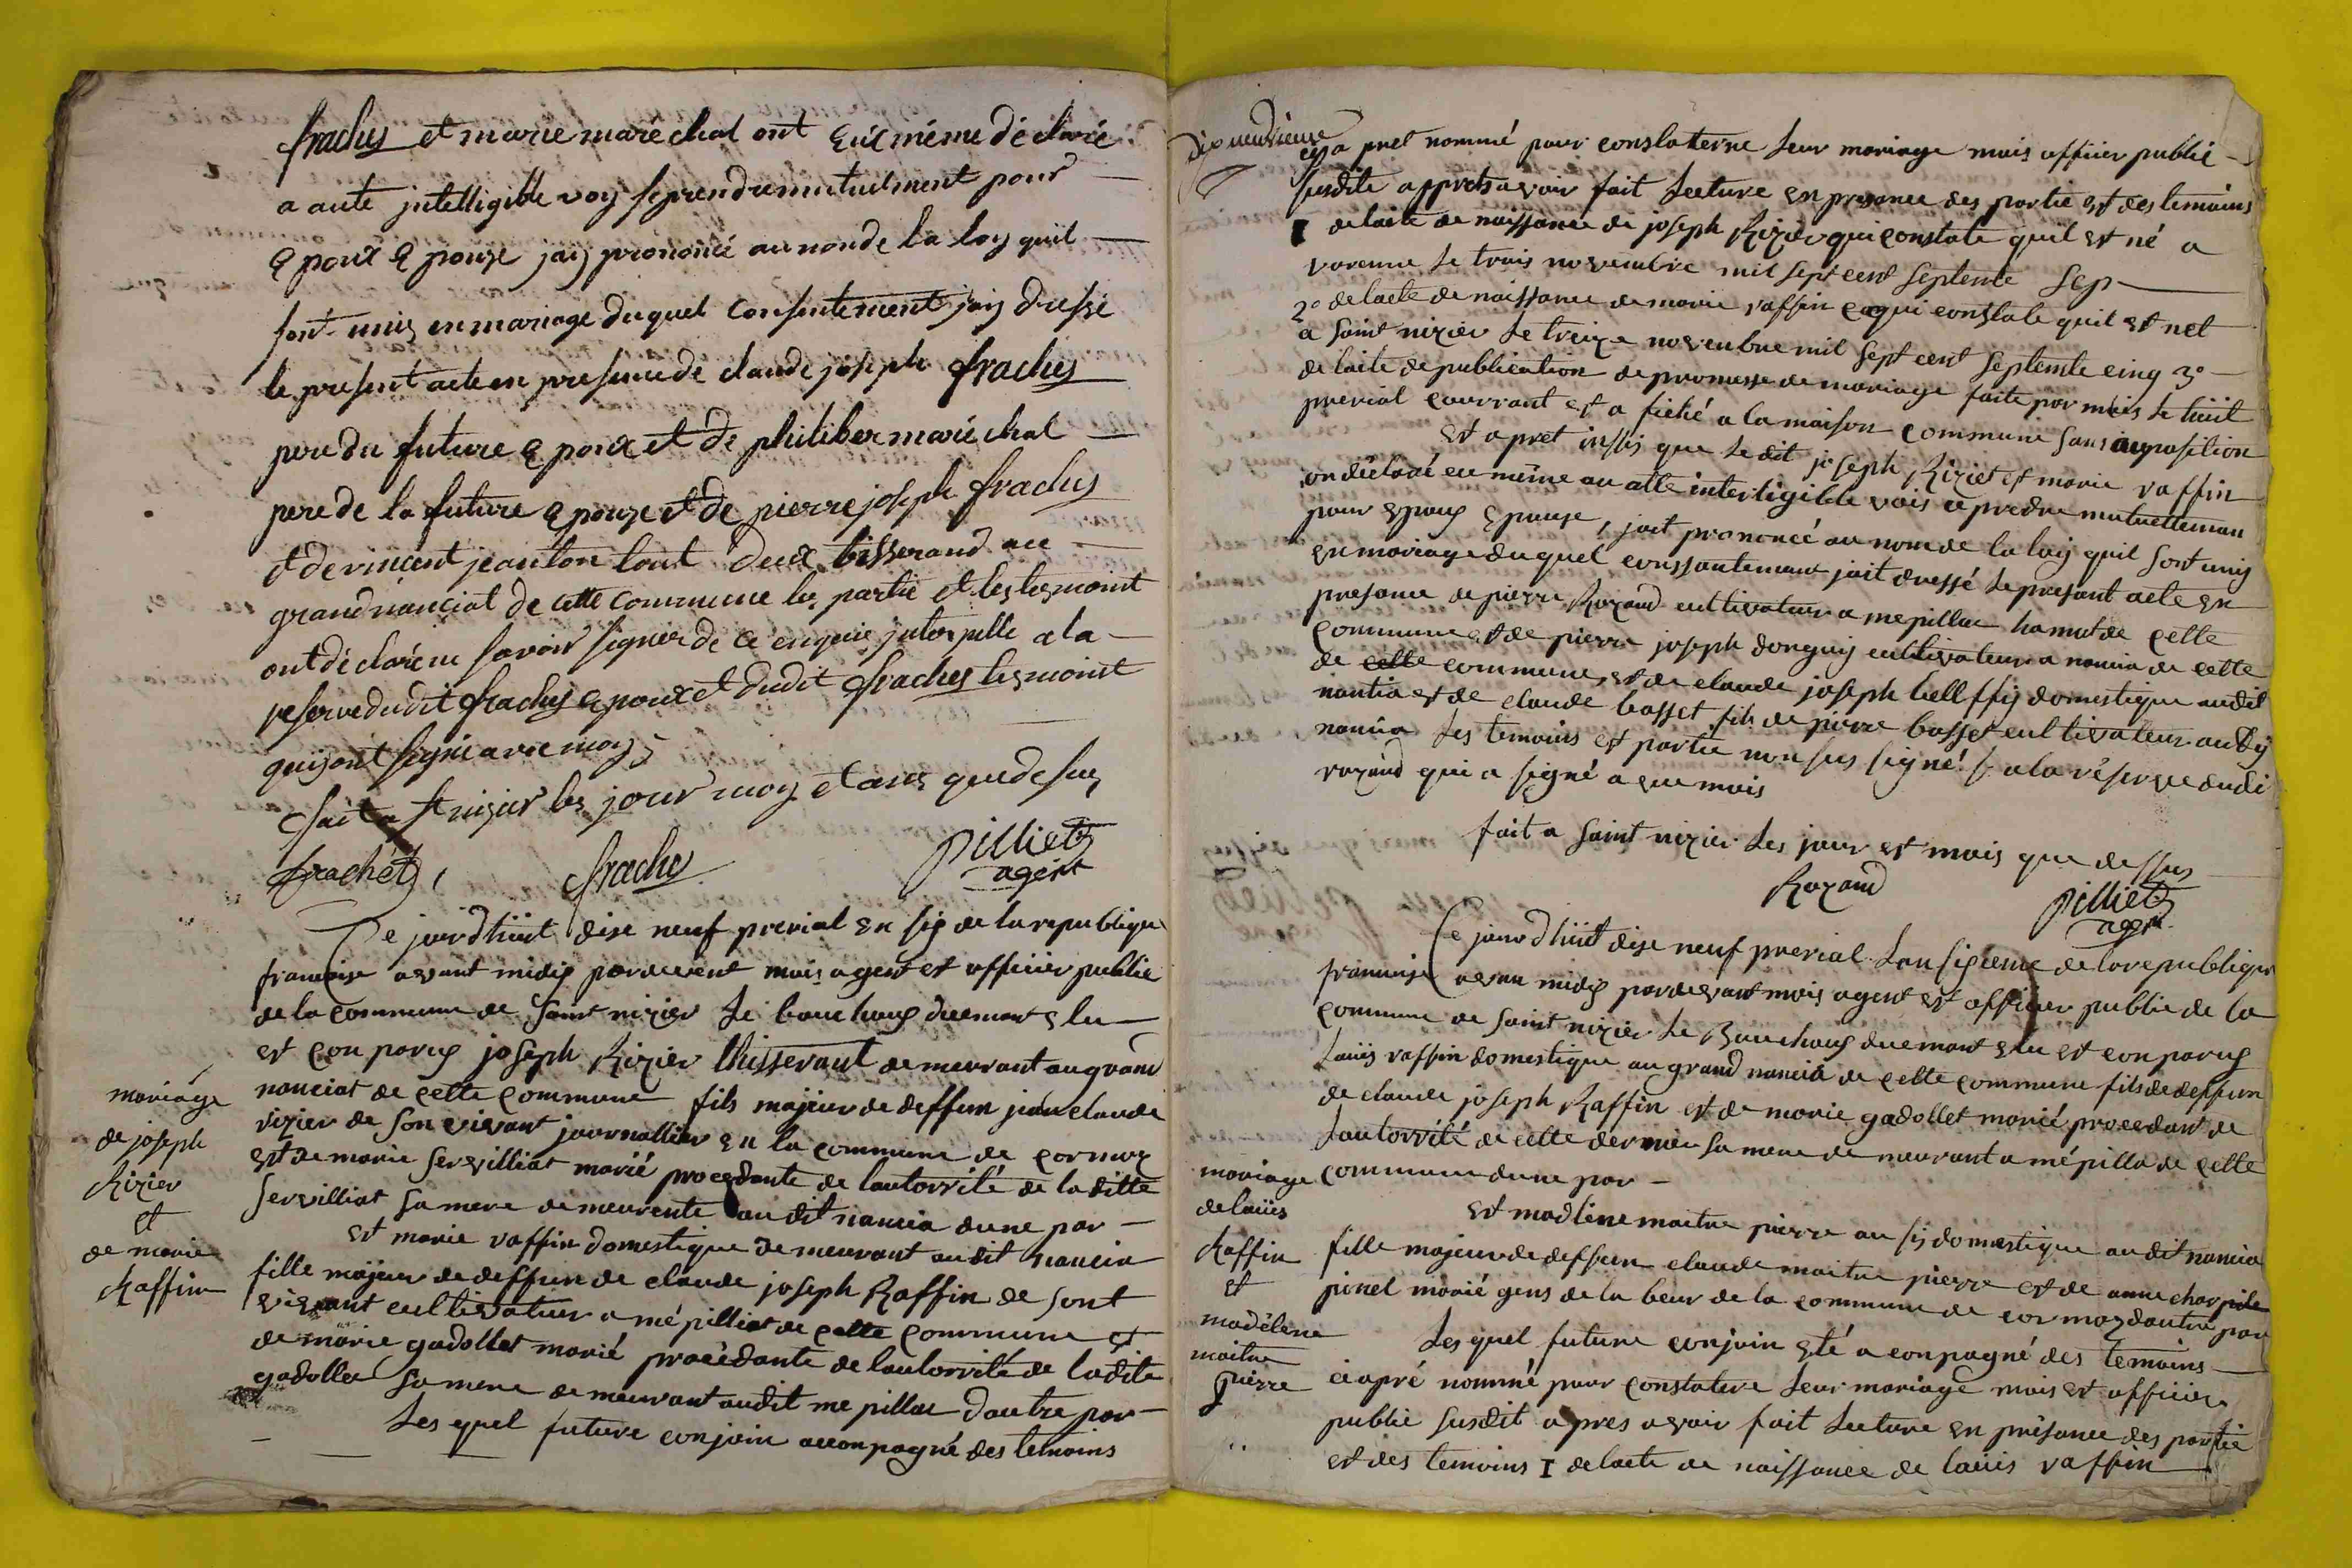 frachus et marie maréchal ont euxmême déclaré
a aute jntelligible voy se prendre mutuelment pour
epoux epouze jay prononcé au nonde la loy quil
sont unis en mariage duquel consentement jay dressé
le present acte en presence de claude joseph frachus
pere du future epoux et de philiber maréchal
pere de la future epouze et de pierre joseph frachus
et de vincent jeanton tout deux tisserand au
grand nanciat de cette commune les partie et les tesmoint
ont déclaré ne savoir signer de ce enquie jnterpelle a la
reserve dudit frachus epoux et dudit frachus tesmoint
quiont signé avec moy
fait a st nizier les jour moy et ans que desus
frachet frachus pilliet
agent
Ce jourdhuit dise neuf prerial en six de la republique
francaise avant midix pardevent mois agent et officier public
de la commune de saint nizier le bouchoux duemant elu
est conparus joseph Rizier thisserant demeurant augrand
nanciat de cette commune fils majeur de deffun jean claude
rizier de son vivant journallier en la commune de cormoz
est de marie servilliat marié procedante de lautorrité de la ditte
servilliat sa mere demeurente audit nancia dune par
est marie raffin domestique demeurant audit nancia
fille majeur de deffun de claude joseph Raffin de sont
vivant cultivateur a mépilliat de cette commune et
de marie gadollet marié procédante de lautorrité de ladite
gadollet sa mere demeurant audit mepillat dautre par
Les quel future conjoin acconpagné des temoins
mariage
de joseph
Rizier
et
de marie
Raffin
dix neuvieme
cy a pret nommé pour constaterne leur mariage mais officier public
susdite apprets avoir fait lecture en presence des partie est des temoins
1 delacte de naissance de joseph Rizier qui constate quil est né a
varenne le trois novembre mil sept cent septente sep
2° delacte de naissance de marie raffin qui constate quil est net
a saint nizier le treize novenbre mil sept cent septente cinq 3°
de lacte de publication de promesse de mariage faite par mois le huit
prerial courrant est a fiché a la maison commune sans auposition
est apret inssis que le dit joseph Riziet est marie raffin
on déclaré eu même au atte interligible vois ce predre mutuelleman
pour epoux epouse, jait prononcé au nom de la loy quil sont unis
en mariage du quel conssantemant jait dressé le presant acte en
presance de pierre Rozand cultivateur a mepillat hamot de cette
commune est de pierre joseph donguy cultivateur a nancia de cette
de cette commune, est de claude joseph bellffy domestique audit
nantia est de claude basset fils de pierre basset cultivateur au dij
nancia les temoins est partie non sus signé a la réserve dudi
rozand qui a signé avec mois
fait a saint nizier les jour est mois que dessus
Rozand pilliet
agent
Ce jourdhuit dise neuf prerial Lan sixieme de la republique
francaise avan midix pardevant mois agent est officier public de la
commune de saint nizier le Bouchoux duemant elu est conparus
Louis raffin domestique au grand nancia de cette commune fils de deffun
de claude joseph Raffin est de marie gadollet marié procedant de
Lautorrité de cette derniere sa mere demeurant a mépilla de cette
commune dune par
est madlene maitre pierre au sij domestique audit nancia
fille majeur de deffun claude maitre pierre est de anne char
pinel marié gens de la beur de la commune de cormoz dautre par
Les quel future conjoin eté a conpagné des temoins
ci apré nommé pour constatere leur mariage mois est officier
public susdit apres avoir fait lecture en présance des partie
est des temoins 1 delacte de naissance de Louis raffin
mariage
de louis
Raffin
et
madélene
maitre
pierre